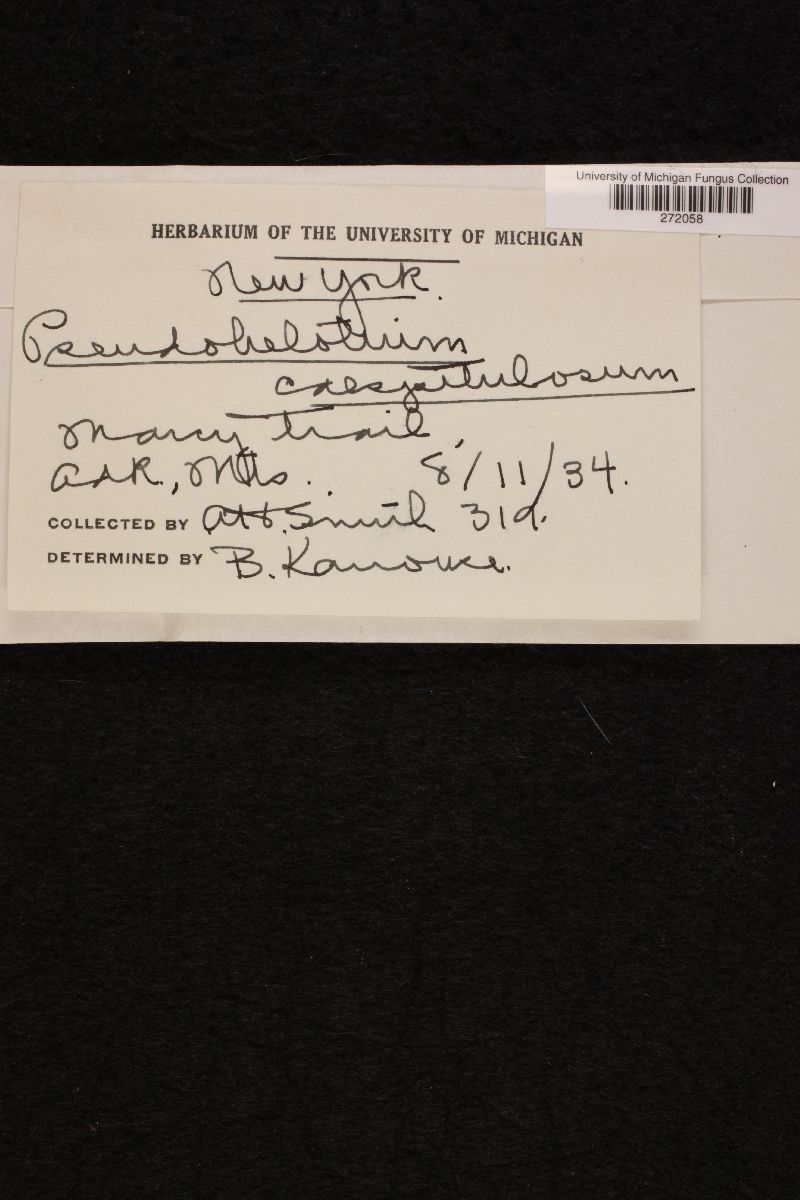 University of Michigan Fungus Collection
272058
HERBARIUM OF THE UNIVERSITY OF MICHIGAN
New York.
Pseudohelotium
caespitulosum
Marcy Trail,
Adk., Mts. 8/11/34.
COLLECTED BY A.H. Smith 31d.
DETERMINED BY B. Kanouse.